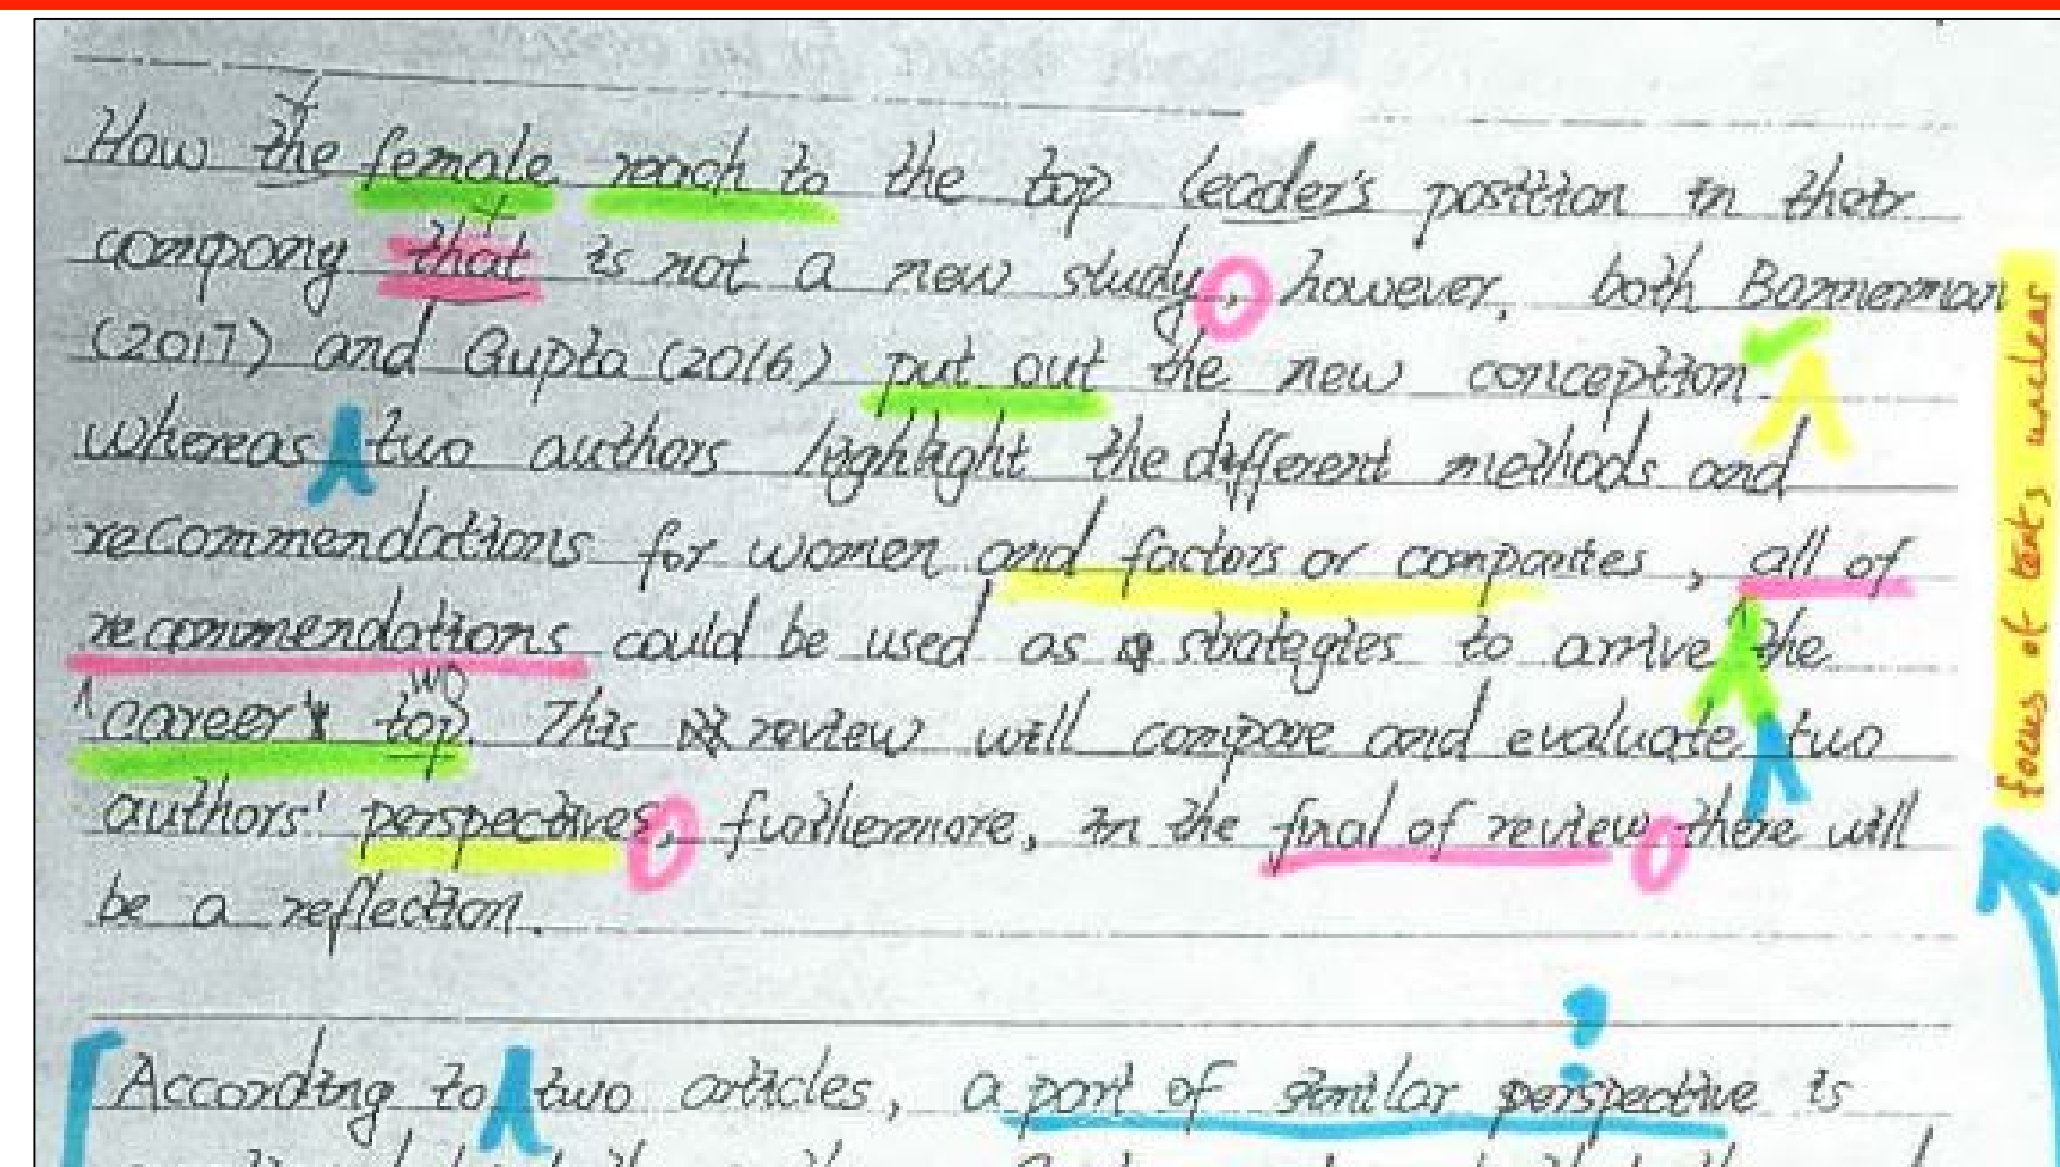 How the female reach to the top leader's position in their
company that is not a new study, however, both Bannerman
(2017) and Gupta (2016) put out the new conception.
whereas two authors highlight the different methods and
recommendations for women and factors or companies, all of
recommendations could be used as strategies to arrive the
career's top. This review will compare and evaluate two
wo
authors' perspectives, furthermore, in the final of review, there will
be a reflection.
According to two articles, a part of similar perspective is
focus of texts unclear